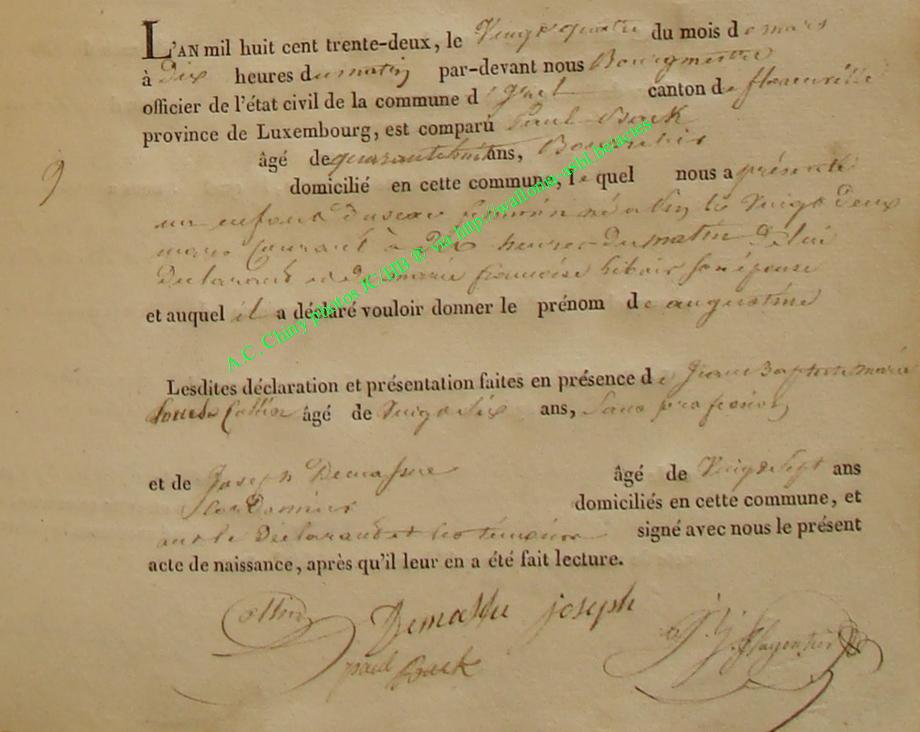 L'AN mil huit cent trente-deux, le Vingt quatre du mois de mars
à Dix heures du matin par-devant nous Bourgmestre
officier de l'état civil de la commune d' canton de florenville
province de Luxembourg, est comparu Paul
âgé de quarante huit ans,
9
domicilié en cette commune, lequel nous a présenté
un enfant du sexe feminin né a les Vingt deux
mars Courant à Dix heures du matin de lui
Declarant et de marie françoise son épouse
et auquel il a déclaré vouloir donner le prénom de augustine
Lesdites déclaration et présentation faites en présence de Jean Baptiste marie
Collin âgé de Vingt six ans, Sans profession
et de Joseph Demasure âgé de Vingt Sept ans
domiciliés en cette commune, et
ont le Déclarant et les témoins signé avec nous le présent
acte de naissance, après qu'il leur en a été fait lecture.
Collin Demassue joseph
paul
A.C. Chiny photos JC/HB © via http://wallonia-asbl.be